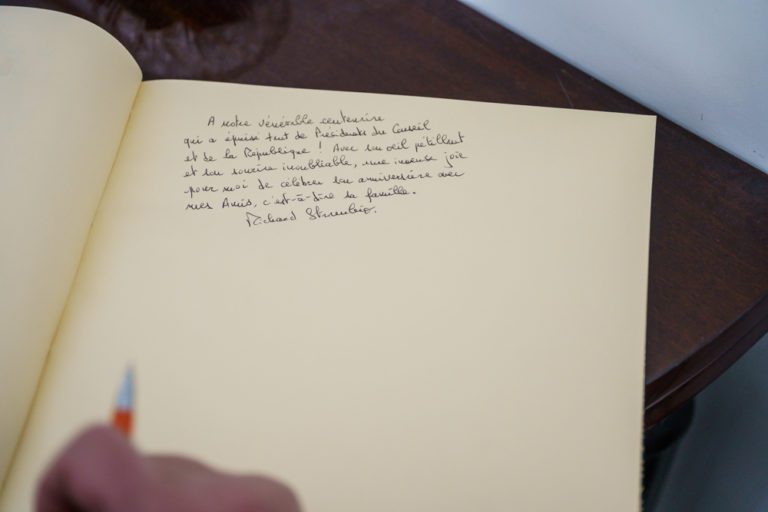 A notre vénérable centenaire
qui a épuisé tant de Présidents du Conseil
et de la République ! Avec son oeil pétillant
et son sourire inoubliable, une immense joie
pour moi de célébrer son anniversaire avec
mes Amis, c'est-à-dire sa famille.
Richard